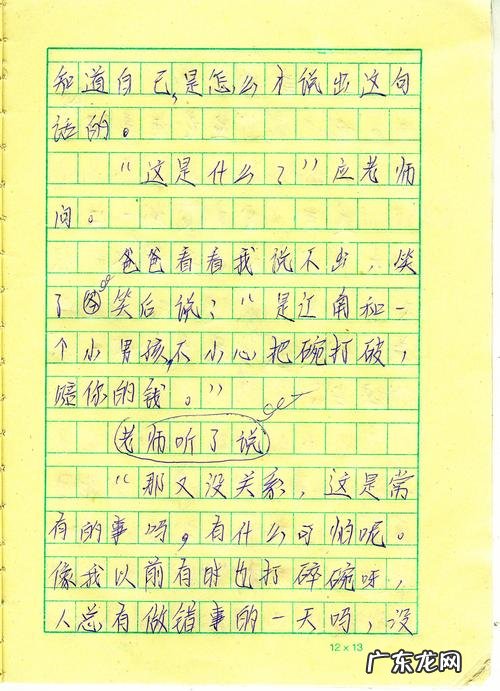 知道自己,是怎么才说出这句
话的。
“这是什么?”应老师
问。
爸爸看看我说不出,笑
了笑后说?“是江角和一
个小男孩,不小心把碗打破,
赔你的钱。”
老师听了说
“那又没关系,这是常
有的事吗,有什么可怕呢。
像我以前有时也打碎碗呀,
人总有做错事的一天吗,没
12×13
广东龙网